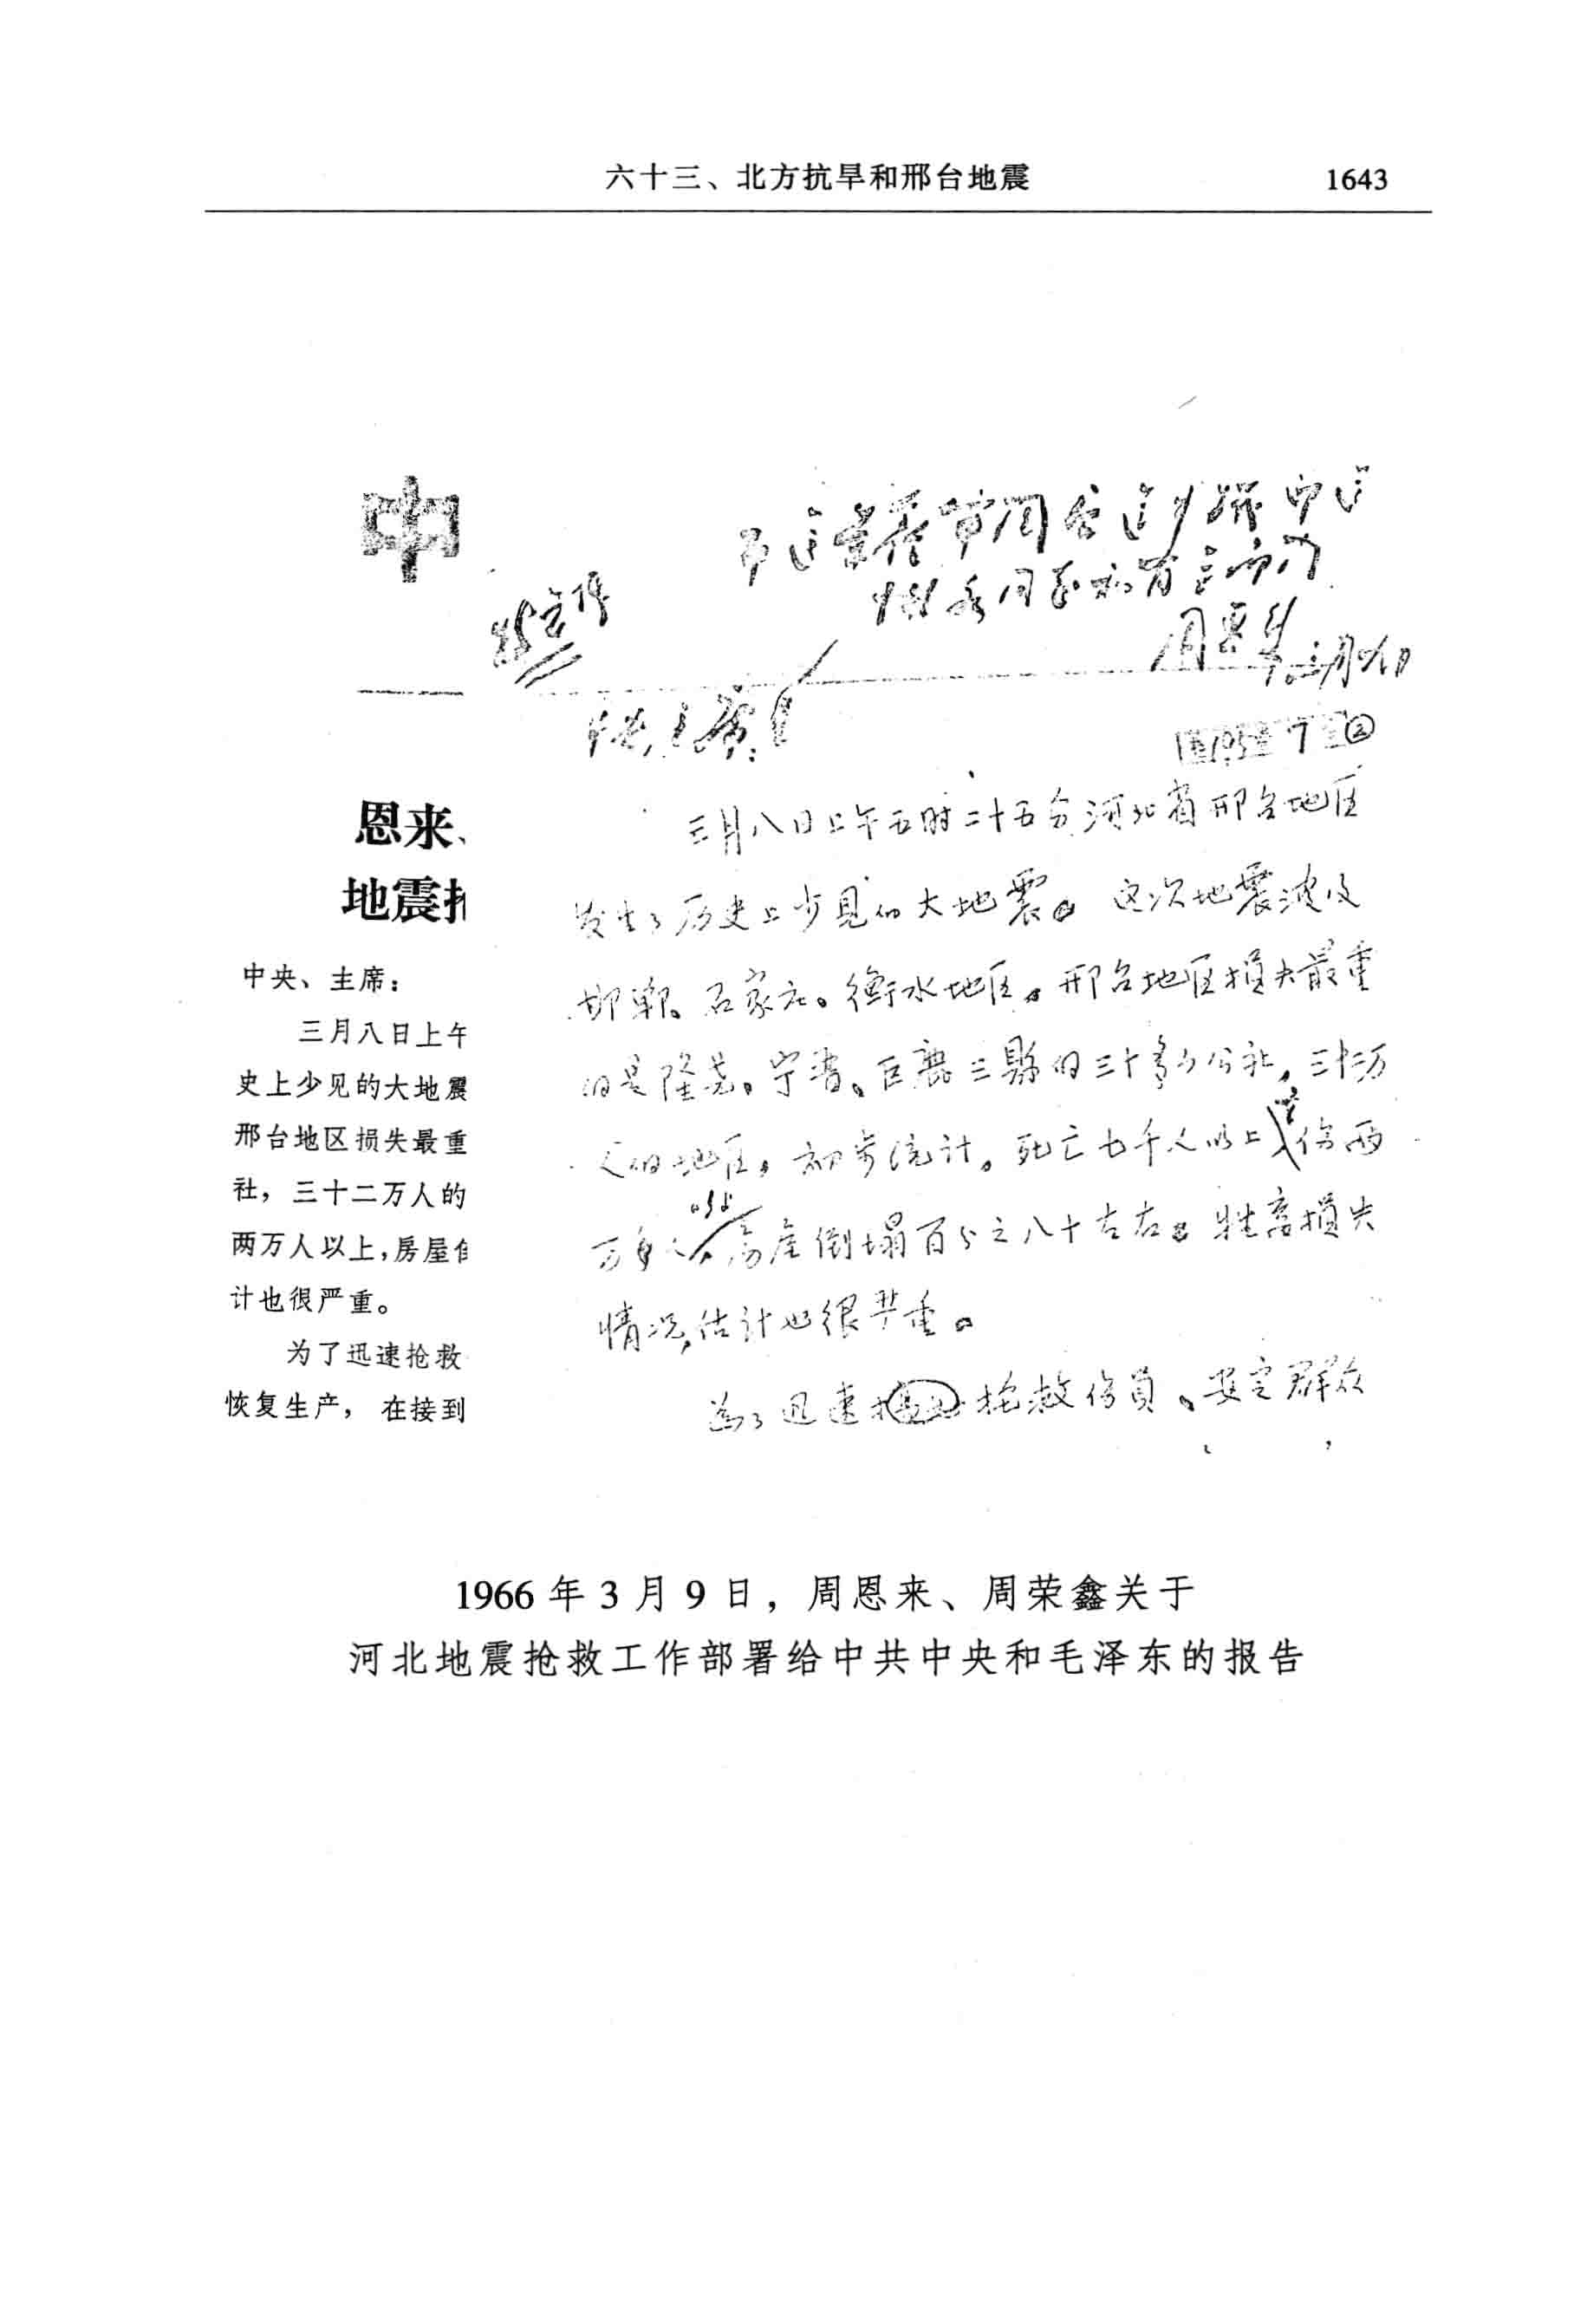 六十三、北方抗旱和邢台地震
1643
中
恩来、
地震
中央、主席：
三月八日上午
史上少见的大地震
邢台地区损失最重
社，三十二万人的
两万人以上，房屋
计也很严重。
为了迅速抢救
恢复生产，在接到
周恩来
中央、主席：
三月八日上午五时二十五分河北省邢台地区
发生了历史上少见的大地震。这次地震波及
邯郸、石家庄、衡水地区。邢台地区损失最重
的是隆尧、宁晋、巨鹿三縣的三十多个公社，三十二万
人的地区，初步统计，死亡七千人以上，伤两
万多人，房屋倒塌百分之八十左右。牲畜损失
情况，估计也很严重。
為了迅速抢救伤員、安定群众
1966年3月9日，周恩来、周荣鑫关于
河北地震抢救工作部署给中共中央和毛泽东的报告